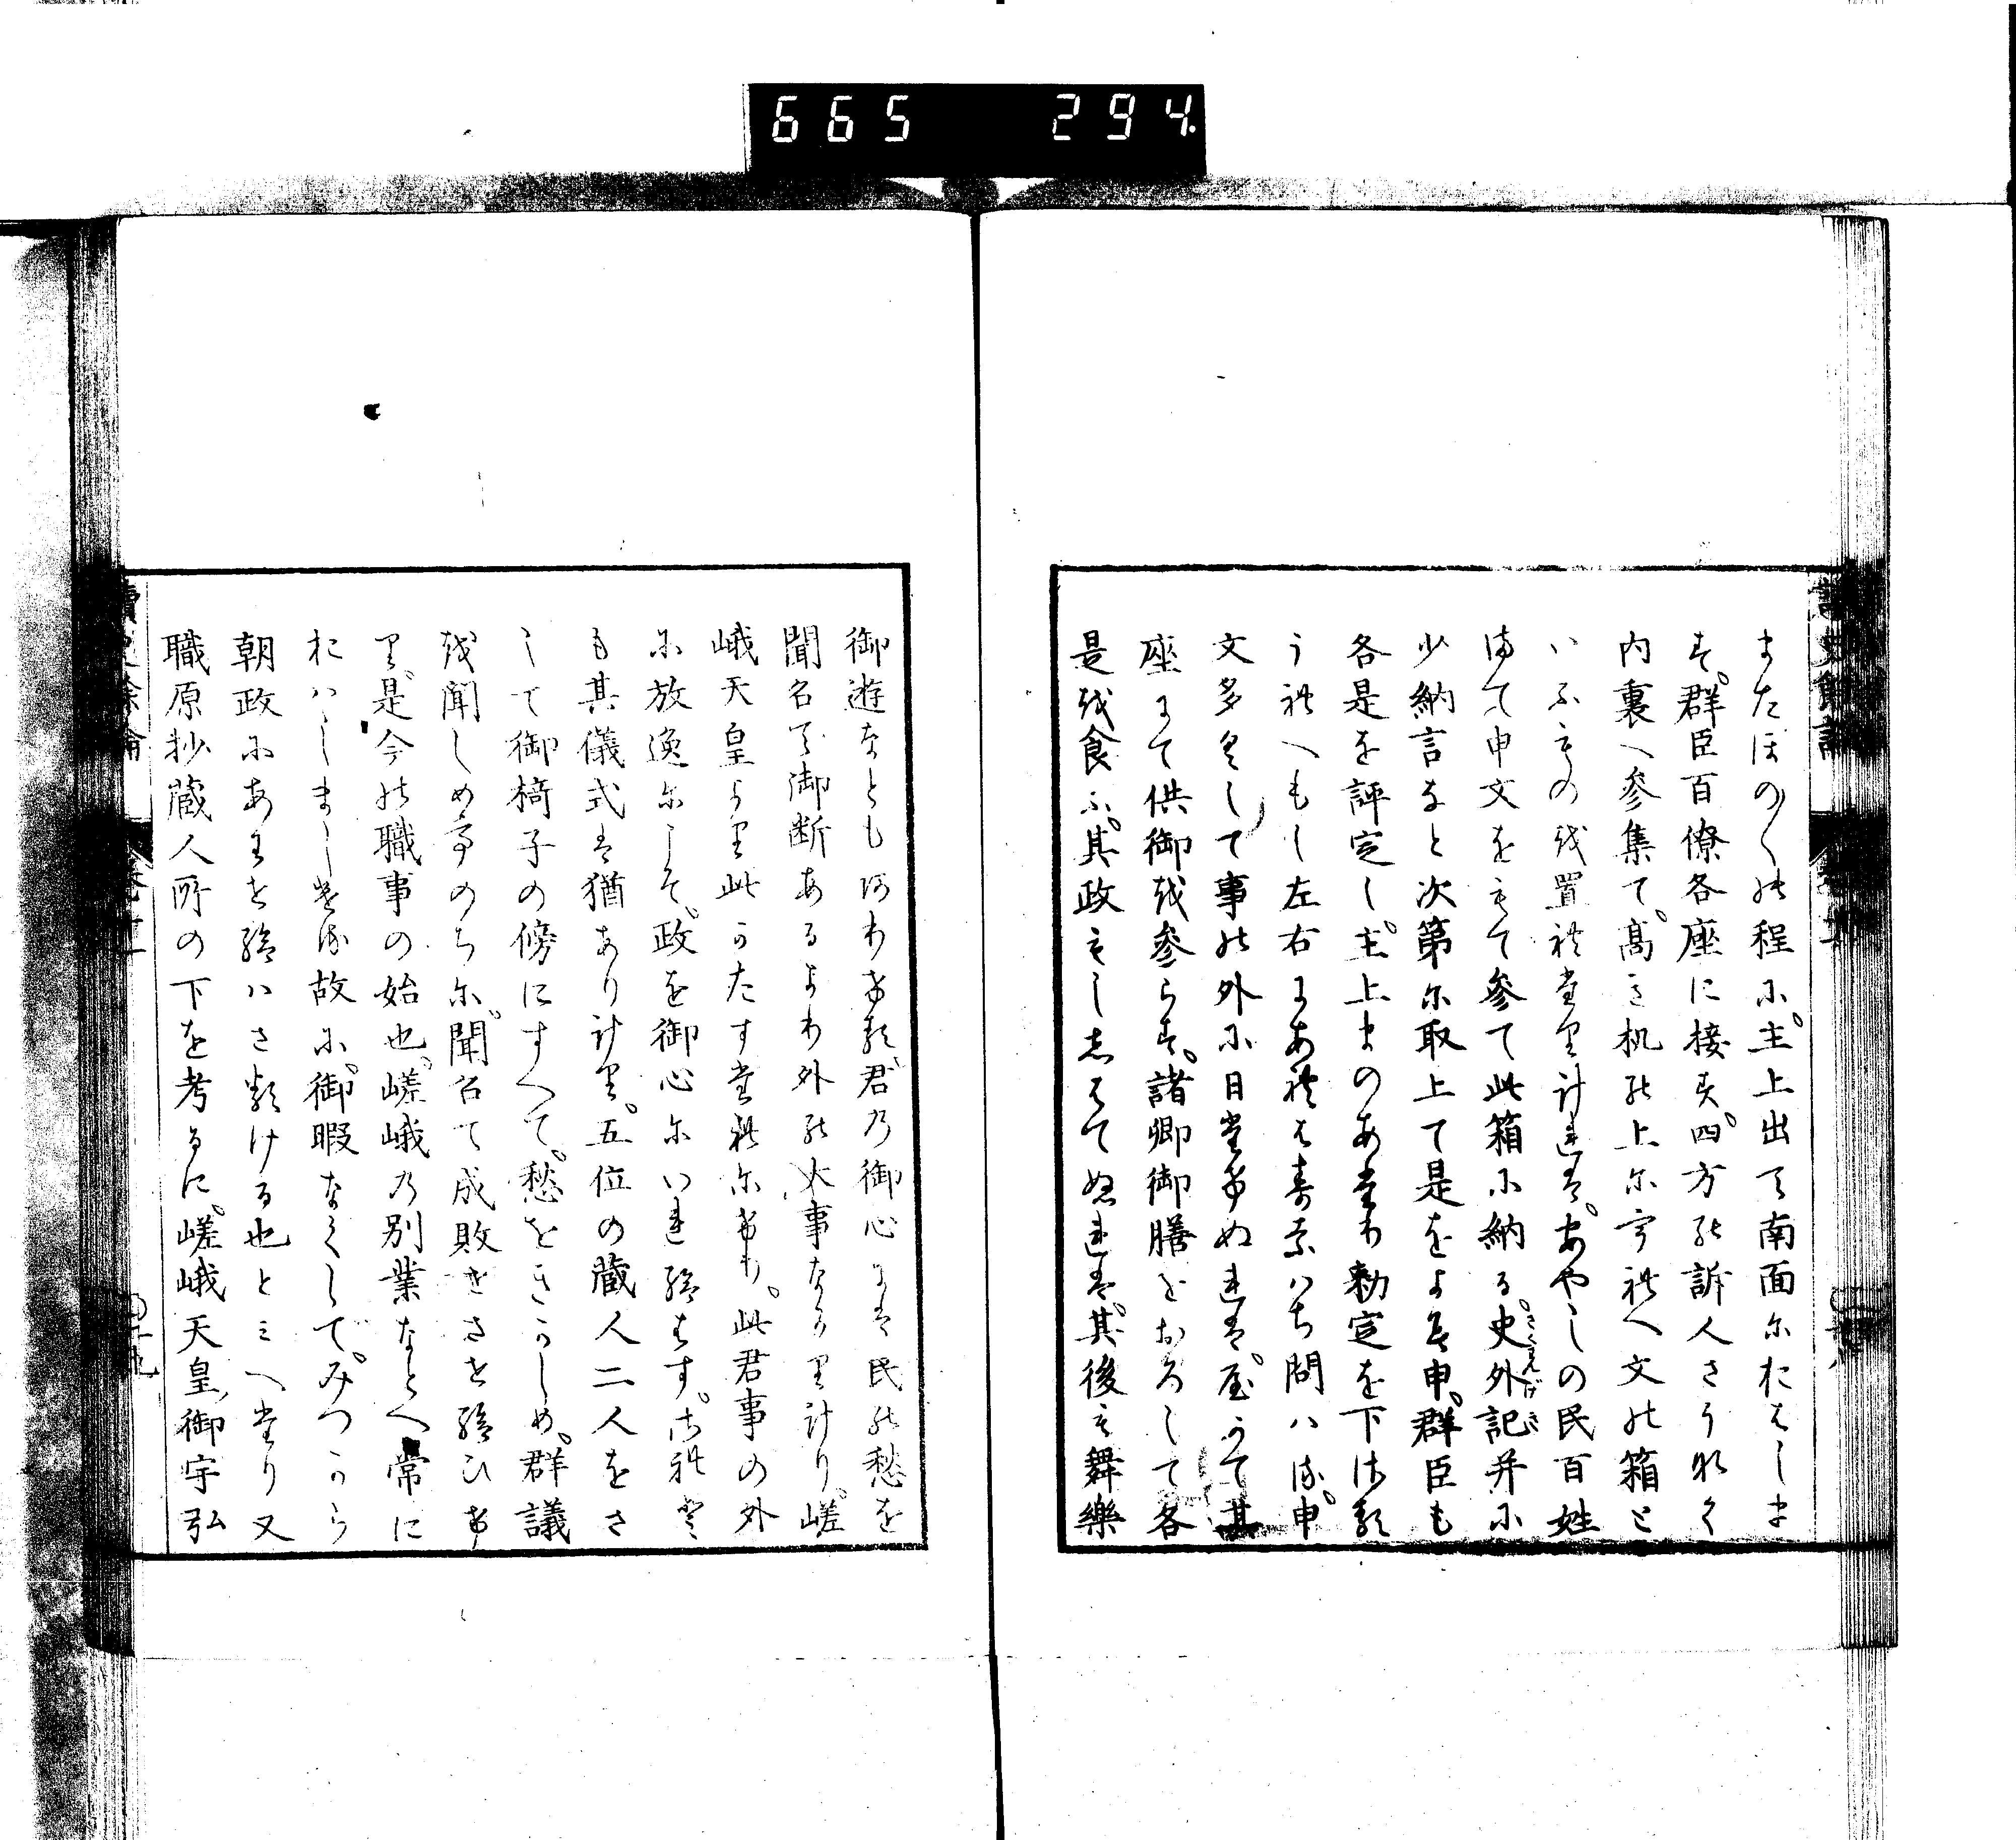 665 294
讀史餘論
またほのくの程に。主上出て南面におはしま
す。群臣百僚各座に接す。四方の訴人さりなく
内裏へ參集て。高き机の上に字れへ文の箱と
いふもの越置れたり計れは。あやしの民百姓
まて申文をもて參て此箱に納る。史外記并に
さくわんげき
少納言なと次第に取上て是をよみ申。群臣も
各是を評定し。主上まのあたり勅定を下さる
うれへもし左右にあれは壽ないち問はる。申
文多くして事の外に日たけぬれは。やかて其
座にて供御を參らす。諸卿御膳をおろして各
是越食ふ。其政もしはてぬれは。其後も舞樂
御遊なともありける。君の御心には民の愁を
聞召て御断あるより外の大事なかりけり。嵯
峨天皇より此かたすたれにけり。此君事の外
に放逸にして。政を御心にいれ給はす。され共
も其儀式は猶あり計り。五位の藏人二人をさ
して御椅子の傍にすへて。愁をきかしめ。群議
を聞しめ事のちに。聞召て成敗せさせ給ひけ
り。是今の職事の始也。嵯峨の別業なとへ常に
おはしましける故に。御暇なくして。みつから
朝政にあはせ給はさりける也とみへたり又
職原抄藏人所の下を考るに。嵯峨天皇御宇弘
讀史餘論
卷十一
十九